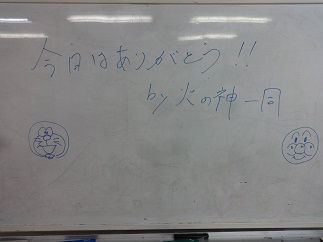 今日はありがとう!!
by 火の神一同